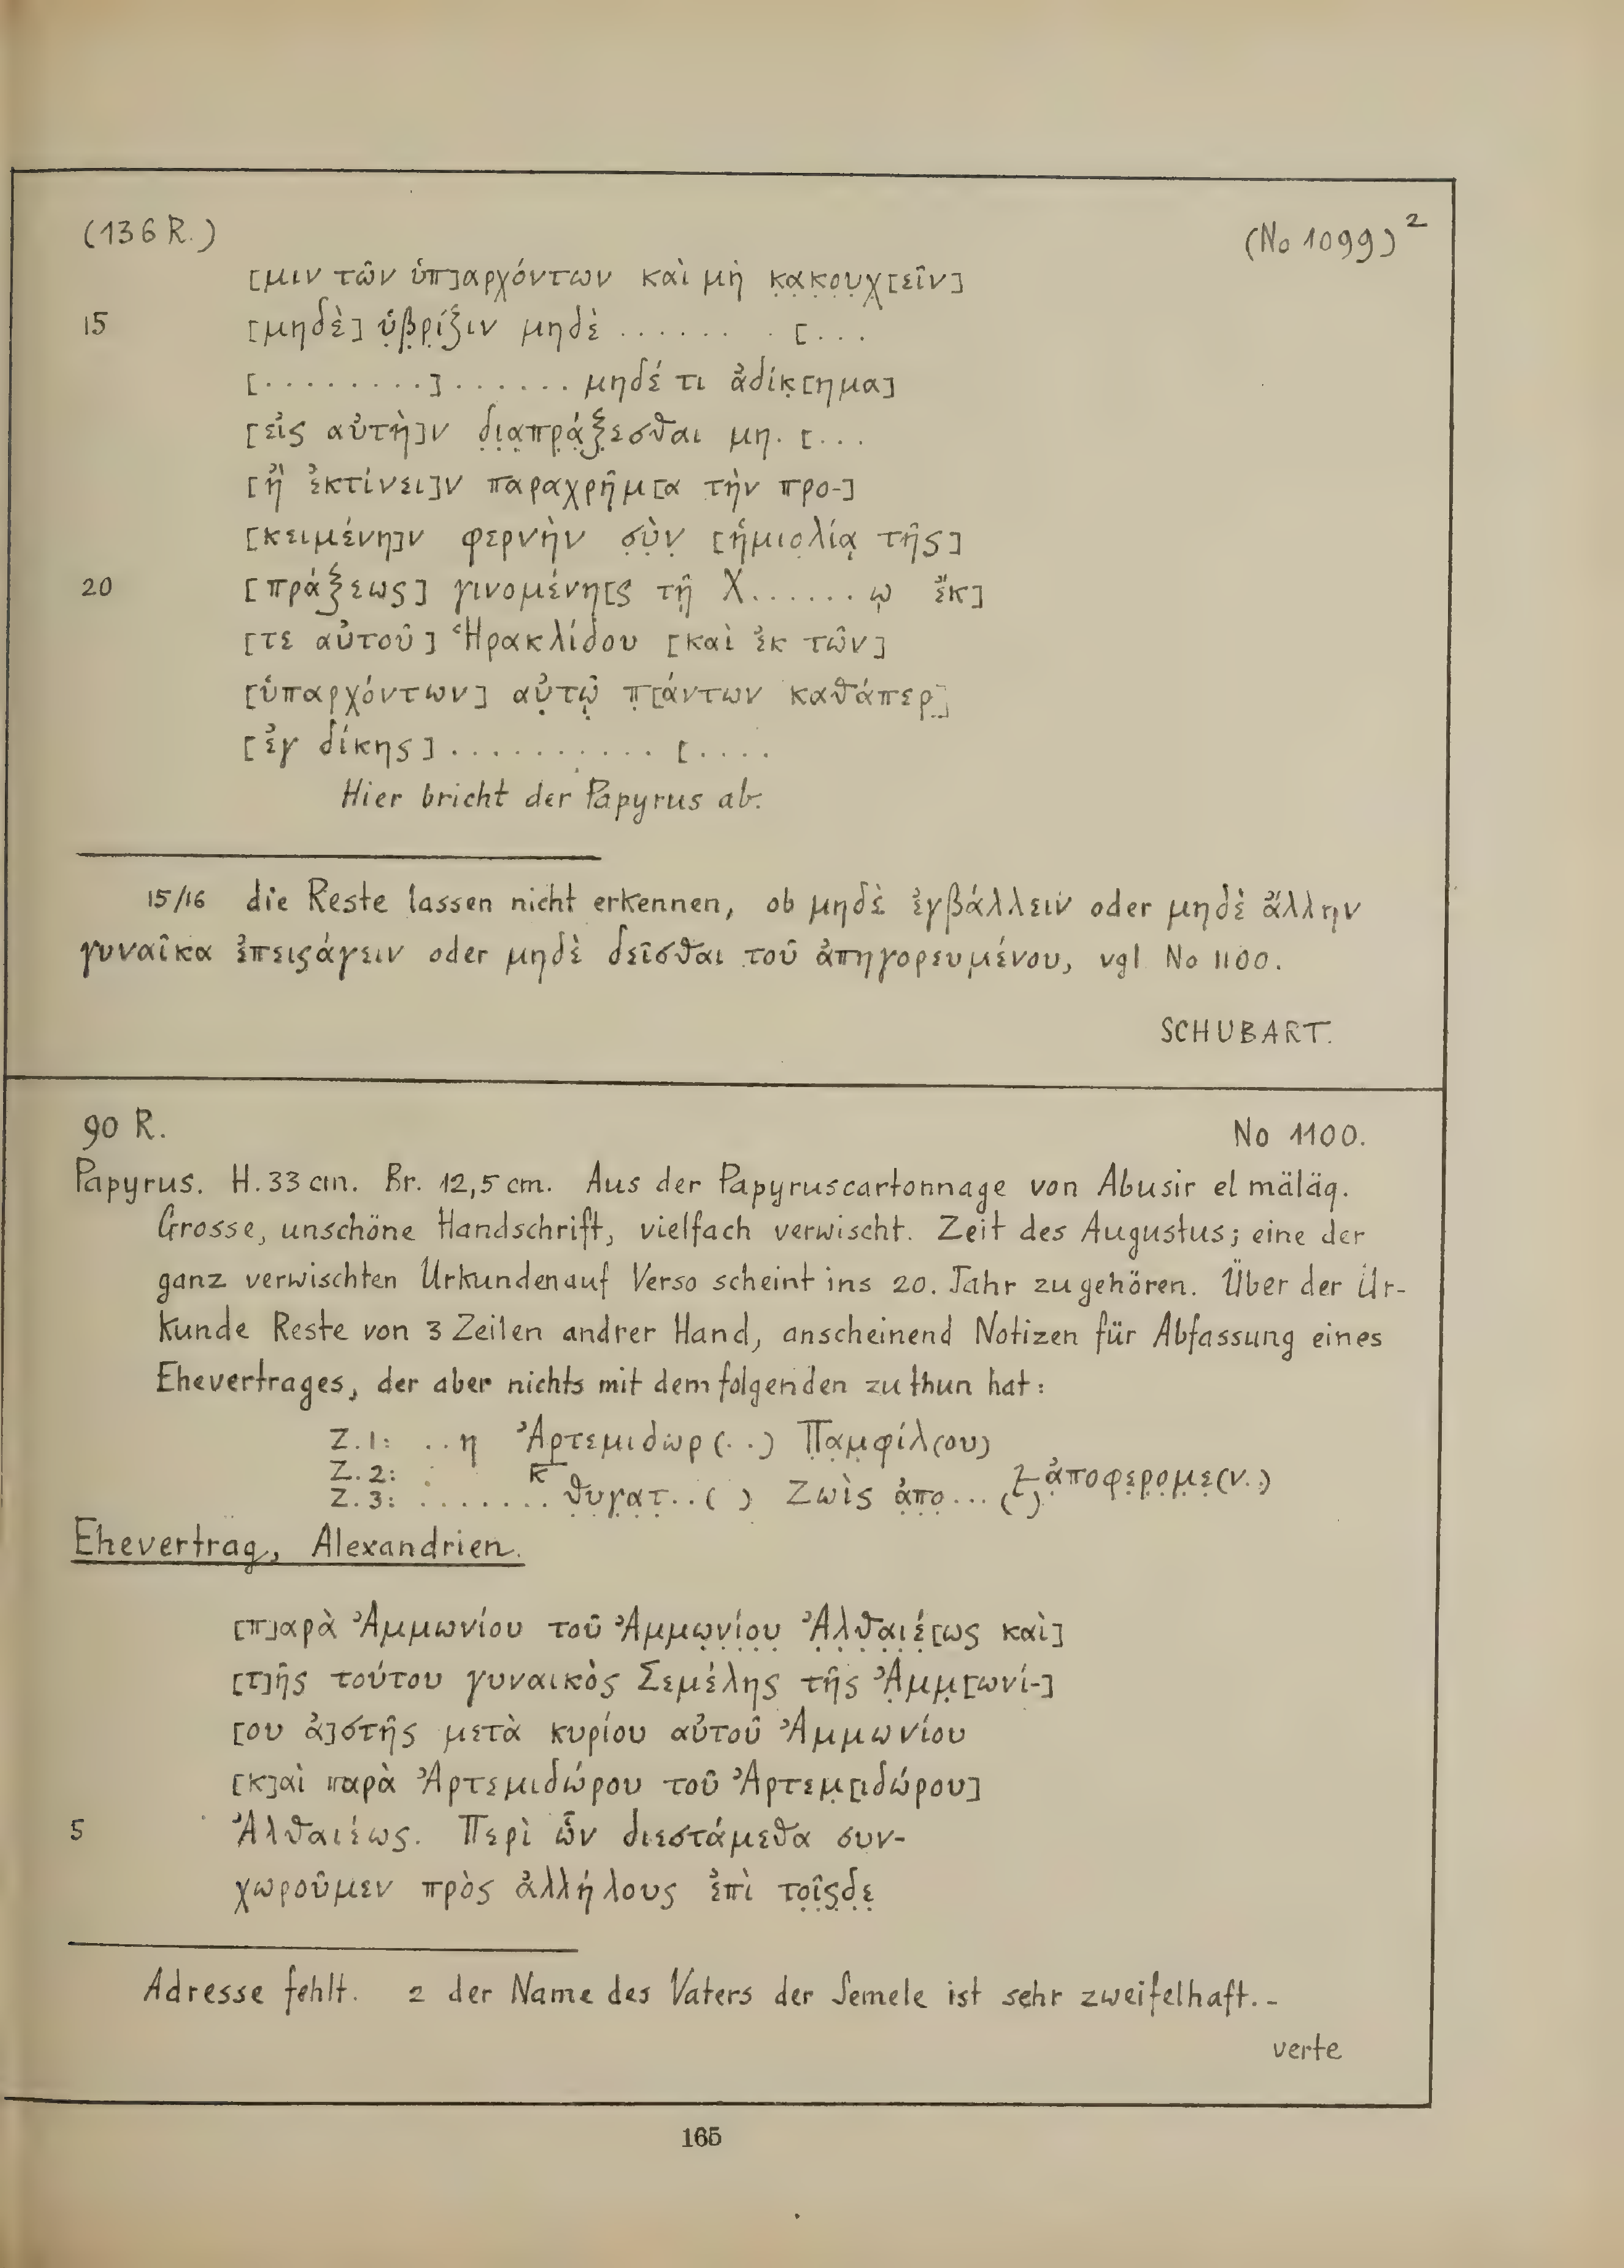 (136 R.) (No 1099)²
[μιν τῶν ὑπ]αρχόντων καὶ μὴ κ̣α̣κ̣ο̣υ̣χ̣[εῖν]
15 [μηδὲ] ὑ̣β̣ρ̣ίξιν μηδὲ ....... . [...
[.........]...... μηδέ τι ἀδίκ̣[ημα]
[εἰς αὐτὴ]ν δ̣ι̣α̣π̣ρ̣ά̣ξ̣εσθαι μη. [...
[ἢ ἐκτίνει]ν παραχρῆμ[α τὴν προ-]
[κειμένη]ν φερνὴν σ̣ὺ̣ν̣ [ἡμιολίᾳ τῆς]
20 [πράξεως] γινομένη[ς τῇ Χ......ῳ ἔκ]
[τε αὐτοῦ] Ἡρακλίδου [καὶ ἐκ τῶν]
[ὑπαρχόντων] αὐ̣τῷ̣ π̣[άντων καθάπερ]
[ἐγ δίκης].......... [....
Hier bricht der Papyrus ab.
15/16 die Reste lassen nicht erkennen, ob μηδὲ ἐγβάλλειν oder μηδὲ ἄλλην
γυναῖκα ἐπεισάγειν oder μηδὲ δεῖσθαι τοῦ ἀπηγορευμένου, vgl No 1100.
SCHUBART.
90 R. No 1100.
Papyrus. H. 33 cm. Br. 12,5 cm. Aus der Papyruscartonnage von Abusir el mäläq.
Grosse, unschöne Handschrift, vielfach verwischt. Zeit des Augustus; eine der
ganz verwischten Urkunden auf Verso scheint ins 20. Jahr zu gehören. Über der Ur-
kunde Reste von 3 Zeilen andrer Hand, anscheinend Notizen für Abfassung eines
Ehevertrages, der aber nichts mit dem folgenden zu thun hat:
Z.1: ..η Ἀρτεμιδωρ(..) Π̣α̣μ̣φίλ(ου)
Z.2: . κ̅
Z.3: ....... θ̣υ̣γ̣α̣τ̣..( ) Ζωὶς ἀ̣π̣ο̣... ( ) ἀ̣ποφε̣ρ̣ο̣μ̣ε̣(ν..)
Ehevertrag, Alexandrien.
[π]αρὰ Ἀμμωνίου τοῦ Ἀμμω̣ν̣ί̣ο̣υ̣ Ἀ̣λ̣θ̣α̣ι̣έ̣[ως καὶ]
[τ]ῆς τούτου γυναικὸς Σεμέλης τῆς Ἀ̣μμ̣[ωνί-]
[ου ἀ]στῆς μετὰ κυρίου αὐτοῦ Ἀμμωνίου
[κ]αὶ παρὰ Ἀρτεμιδώρου τοῦ Ἀρτεμ̣[ιδώρου]
5 Ἀλθαιέως. Περὶ ὧν διεστάμεθα συν-
χωροῦμεν πρὸς ἀλλήλους ἐπὶ το̣ῖ̣ς̣δ̣ε̣
Adresse fehlt. 2 der Name des Vaters der Semele ist sehr zweifelhaft.-
verte
165